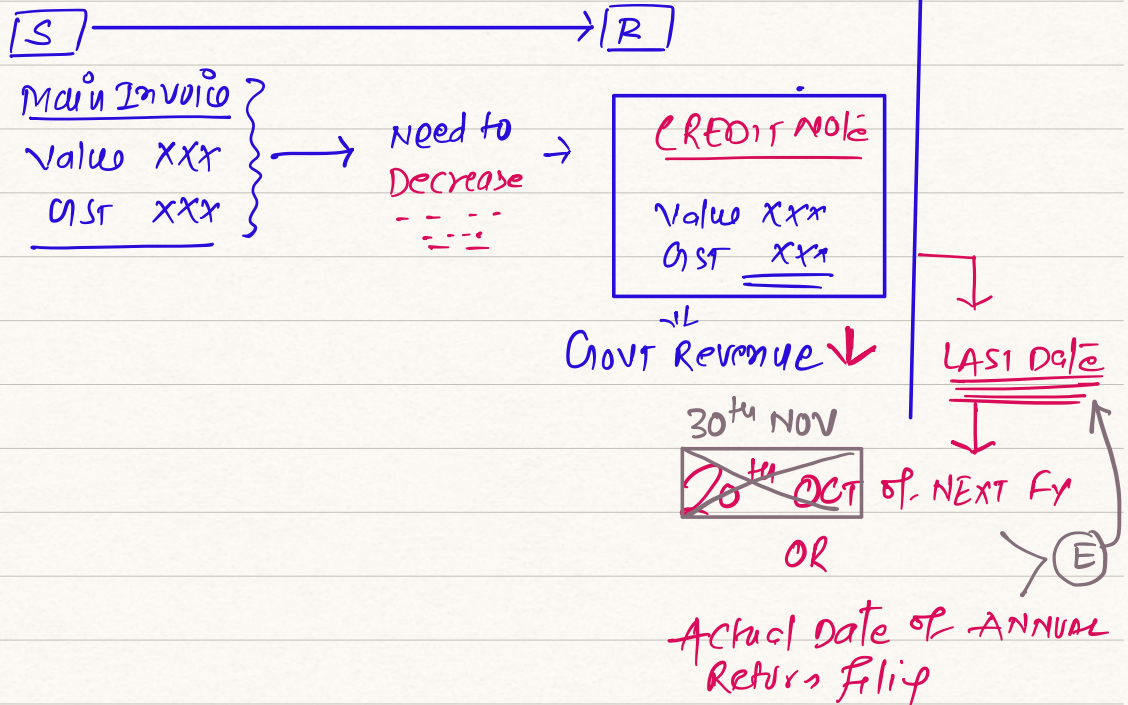 S
R
Main Invoice
Value xxx
GST xxx
Need to
Decrease
CREDIT NOTE
Value xxx
GST xxx
GOVT Revenue
LAST Date
30th NOV
20th OCT of NEXT FY
OR
E
Actual Date of ANNUAL
Return Filing